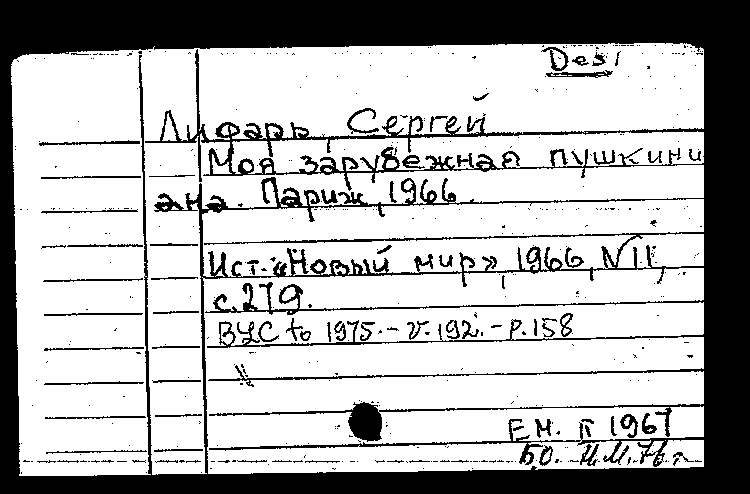 Desi.
Лифарь, Сергей
Моя зарубежная пушкини
ана. Париж, 1966.
Ист. «Новый мир», 1966, N11,
с. 279.
BLC to 1975. - v. 192. - p. 158
Е.Н. II 1967
Б.О. 76 г.